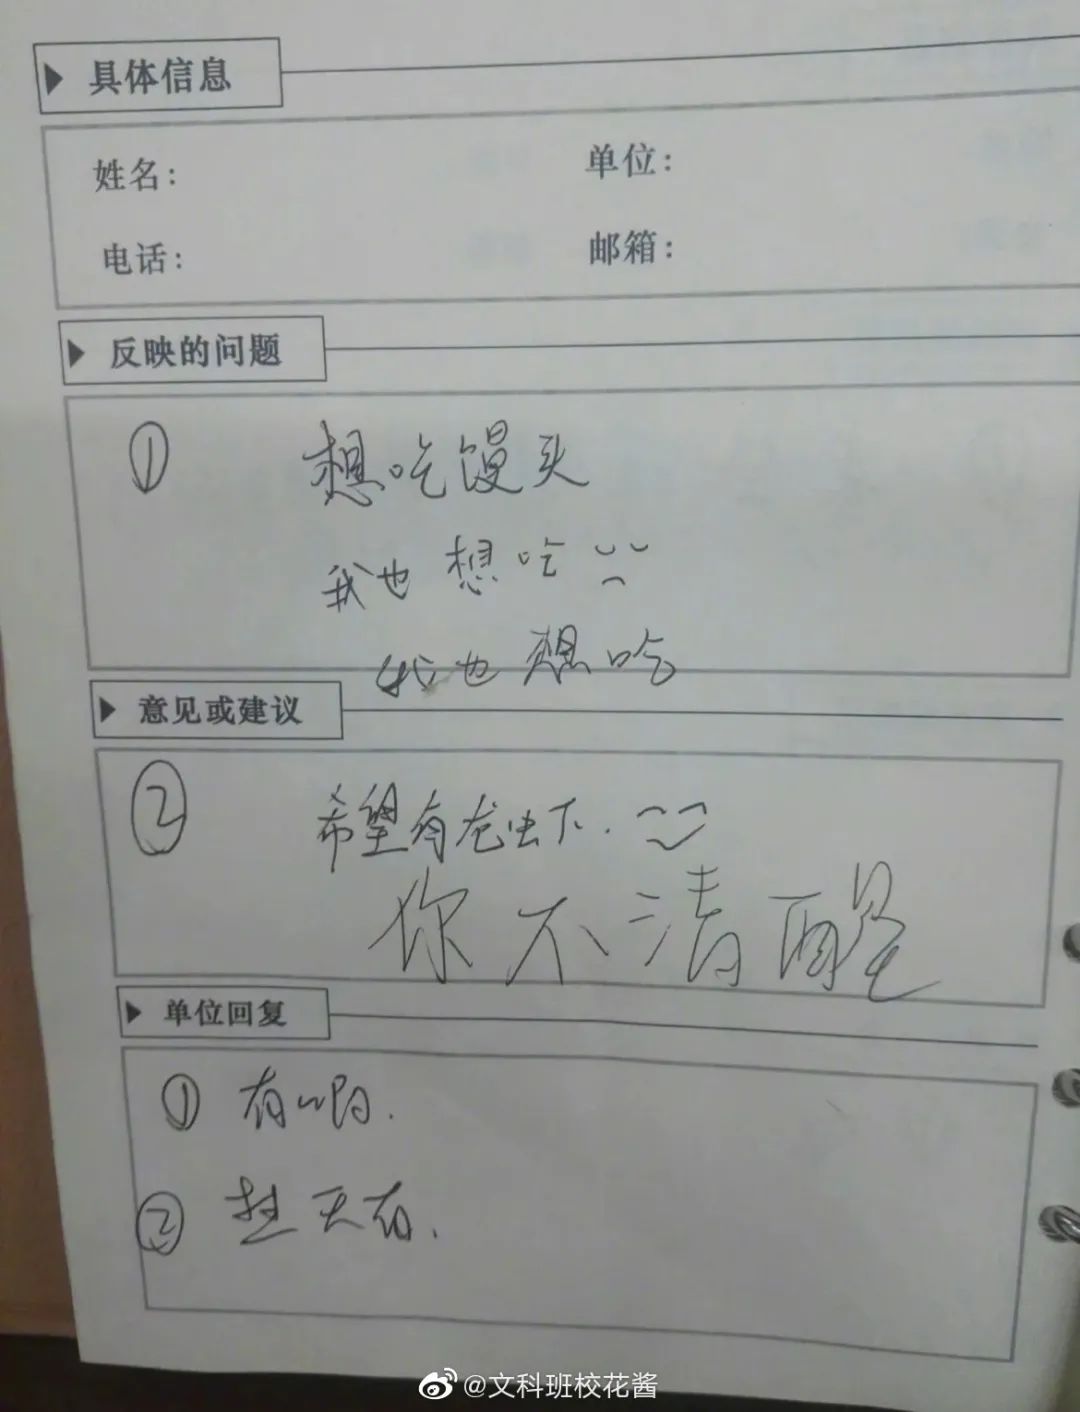 具体信息
姓名： 单位：
电话： 邮箱：
反映的问题
① 想吃馒头
我也想吃
我也想吃
意见或建议
② 希望有龙虫下.
你不清醒
单位回复
① 有啊.
② 天有.
@文科班校花酱